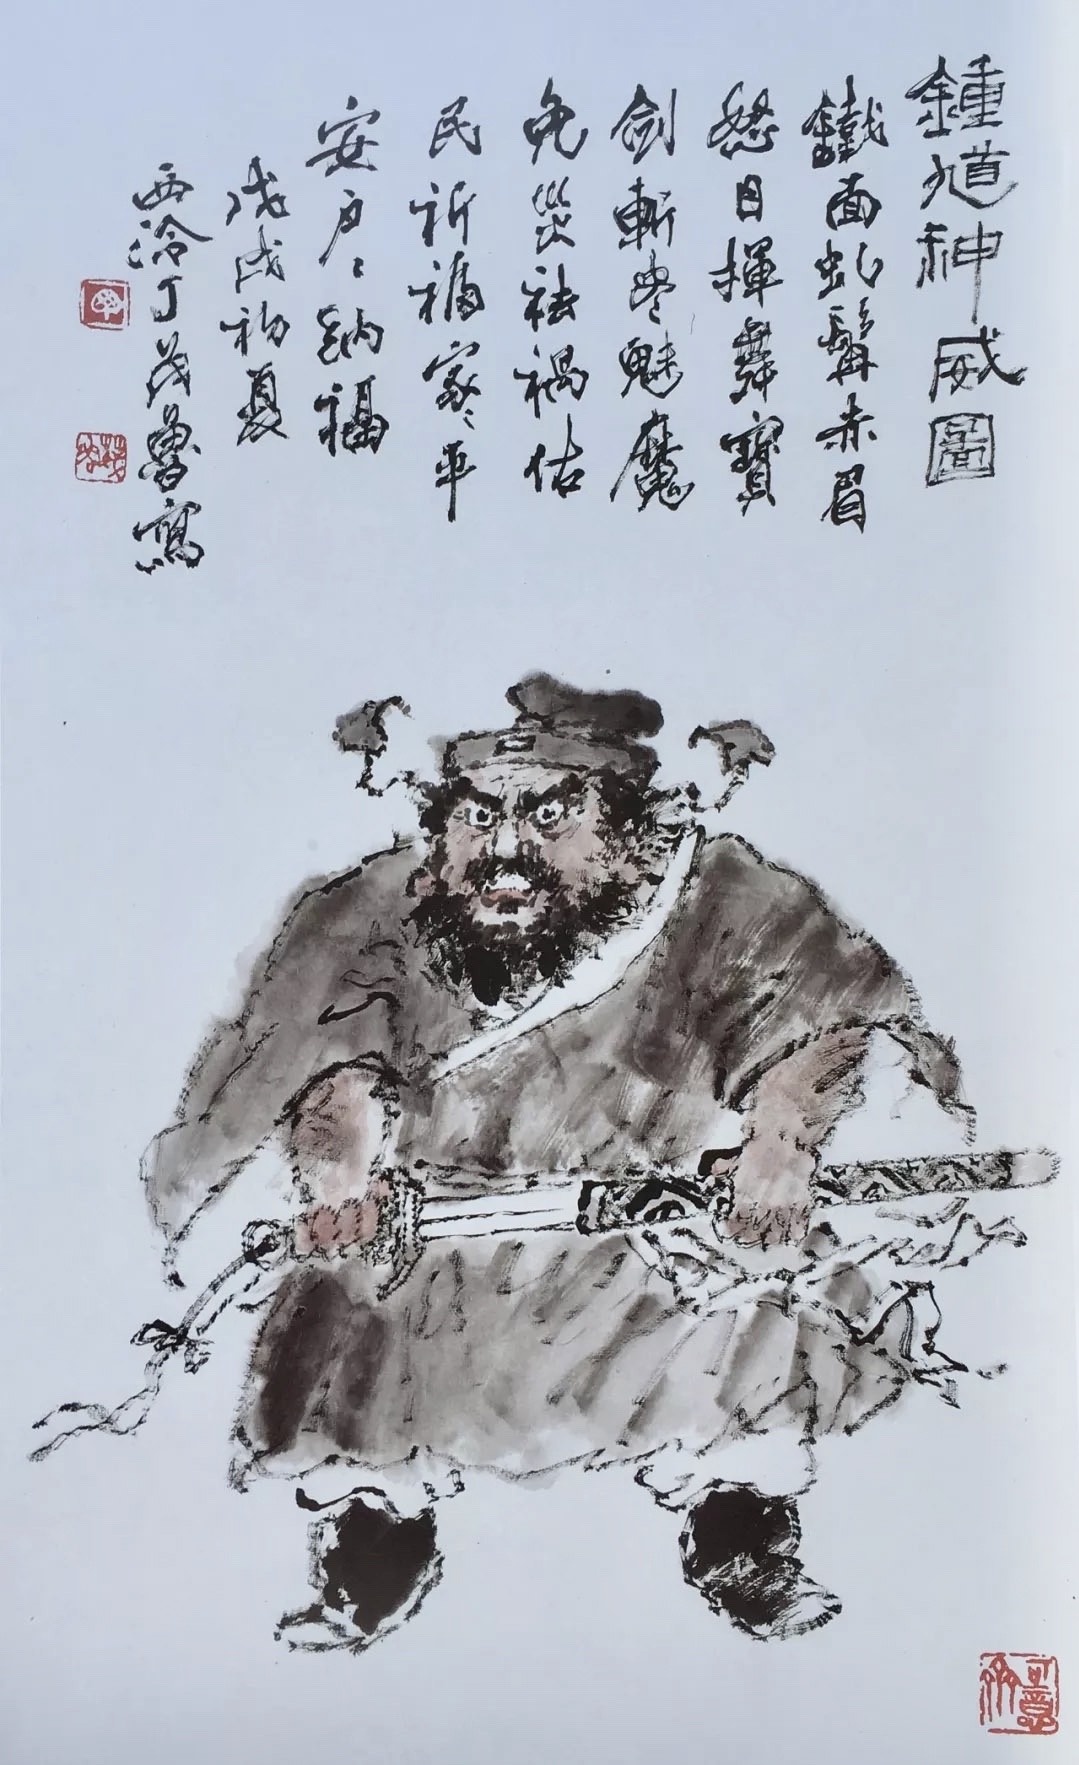 鍾馗神威圖
鐵面虬髯赤眉
怒目揮舞寶
劍斬尽魅魔
免災祛禍佑
民祈福家々平
安户々納福
戊戌初夏
西泠丁茂魯寫